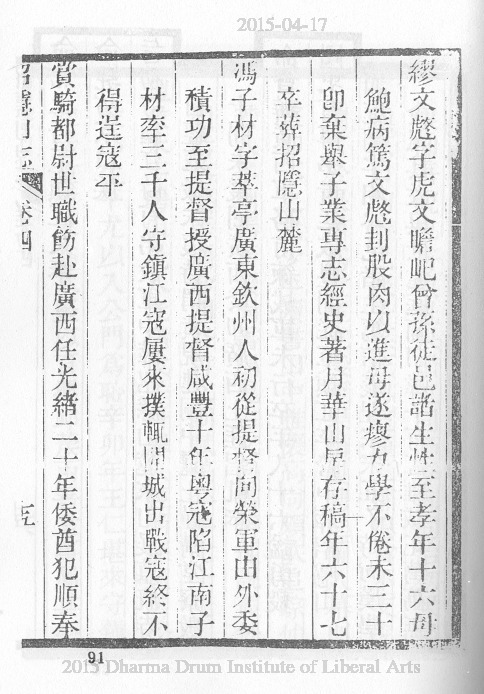 2015-04-17
繆文彪字虎文瞻屺曾孫徒邑諸生性至孝年十六母
鮑病篤文彪刲股肉以進母遂瘳力學不倦未三十
卽棄舉子業專志經史著月華山房存稿年六十七
卒葬招隱山麓
馮子材字萃亭廣東欽州人初從提督向榮軍由外委
積功至提督授廣西提督咸豐十年粵寇陷江南子
材率三千人守鎮江寇屢來撲輒開城出戰寇終不
得逞寇平
賞騎都尉世職飭赴廣西任光緒二十年倭酋犯順奉
招隱山志 卷四
五
91
2015 Dharma Drum Institute of Liberal Arts